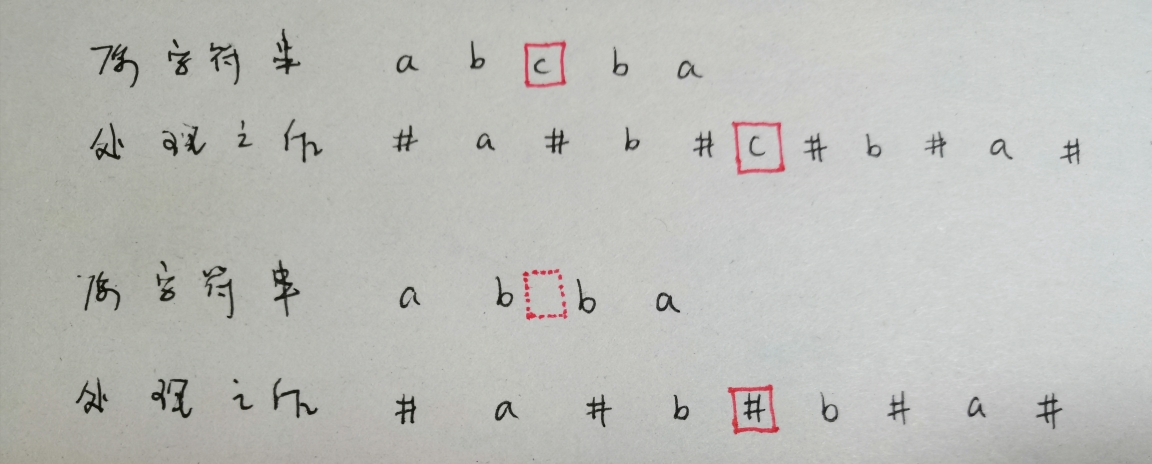 原字符串 a b c b a
处理之后 # a # b # c # b # a #
原字符串 a b b a
处理之后 # a # b # b # a #